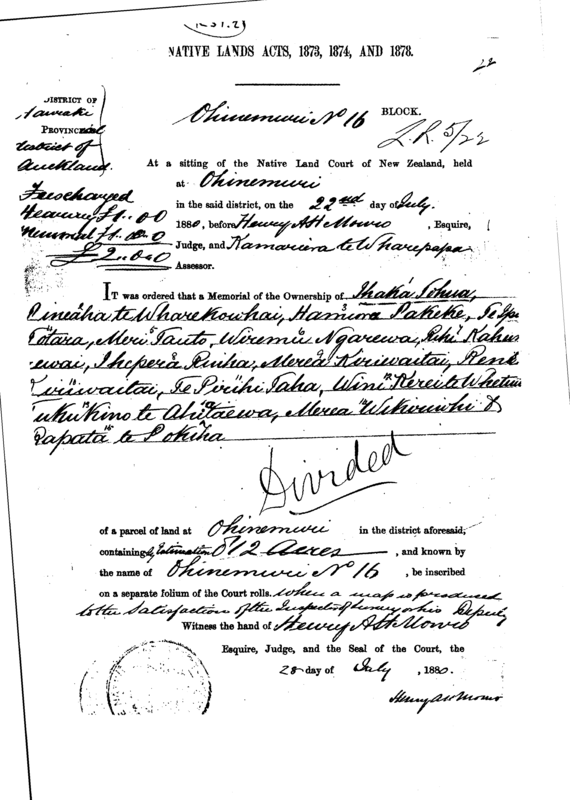 NATIVE LANDS ACTS, 1873, 1874, AND 1878.
22
DISTRICT OF
Hauraki
PROVINCIAL
District of
Auckland.
Ohinemuri No 16 BLOCK.
L.R. 5/22
At a sitting of the Native Land Court of New Zealand, held
at Ohinemuri
in the said district, on the 22nd day of July.
1880, before Henry A H Monro, Esquire,
Judge, and Kamariera te Wharepapa
Assessor.
Fees charged
Hearing £1..0.0
Memorial £1..0.0
£2..0.0
IT was ordered that a Memorial of the Ownership of Ihaka Tohua,
Pineaha te Wharekowhai, Hamiora Pakeke, Te Ipu
Totara, Meri Tauto, Wiremu Ngarewa, Rihi Kahu
ewai, Ihepera Ruiha, Merea Kiriwaitai, Rena
Kiriwaitai, Te Pirihi Taha, Wini Kerei te Whetu
ukukino te Ahutaewa, Merea Wikiriwhi &
Papata te Pokiha
Divided
of a parcel of land at Ohinemuri in the district aforesaid,
containing by Estimation 512 Acres, and known by
the name of Ohinemuri No 16, be inscribed
on a separate folium of the Court rolls. when a map is produced
to the satisfaction of the Inspector of Surveys or his Deputy
Witness the hand of Henry A H Monro
Esquire, Judge, and the Seal of the Court, the
28 day of July, 1880.
Henry A H Monro